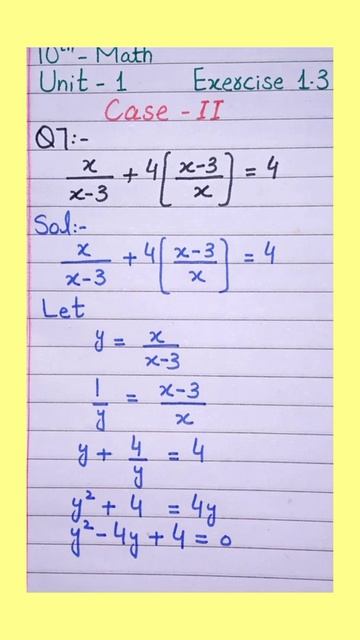 10th - Math
Unit - 1 Exercise 1.3
Case - II
Q7:-
x/(x-3) + 4[(x-3)/x] = 4
Sol:-
x/(x-3) + 4[(x-3)/x] = 4
Let
y = x/(x-3)
1/y = (x-3)/x
y + 4/y = 4
y² + 4 = 4y
y² - 4y + 4 = 0